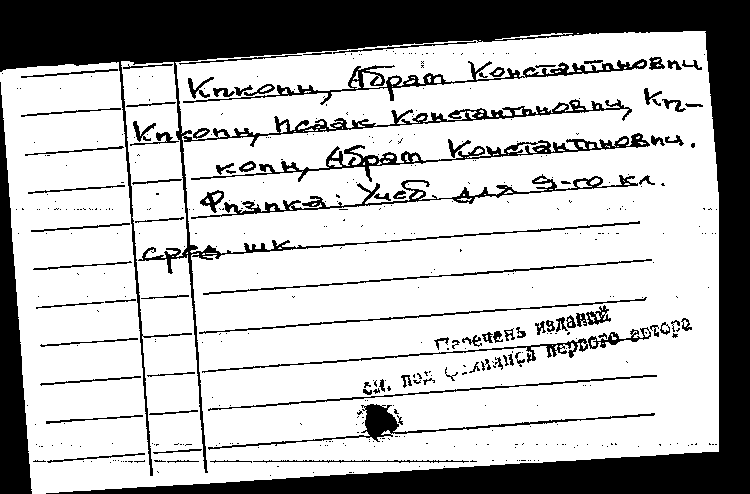 Кикоин, Абрам Константинович
Кикоин, Исаак Константинович, Ки-
коин, Абрам Константинович.
Физика: Учеб. для 9-го кл.
сред. шк.
Перечень изданий
см. под фамилией первого автора